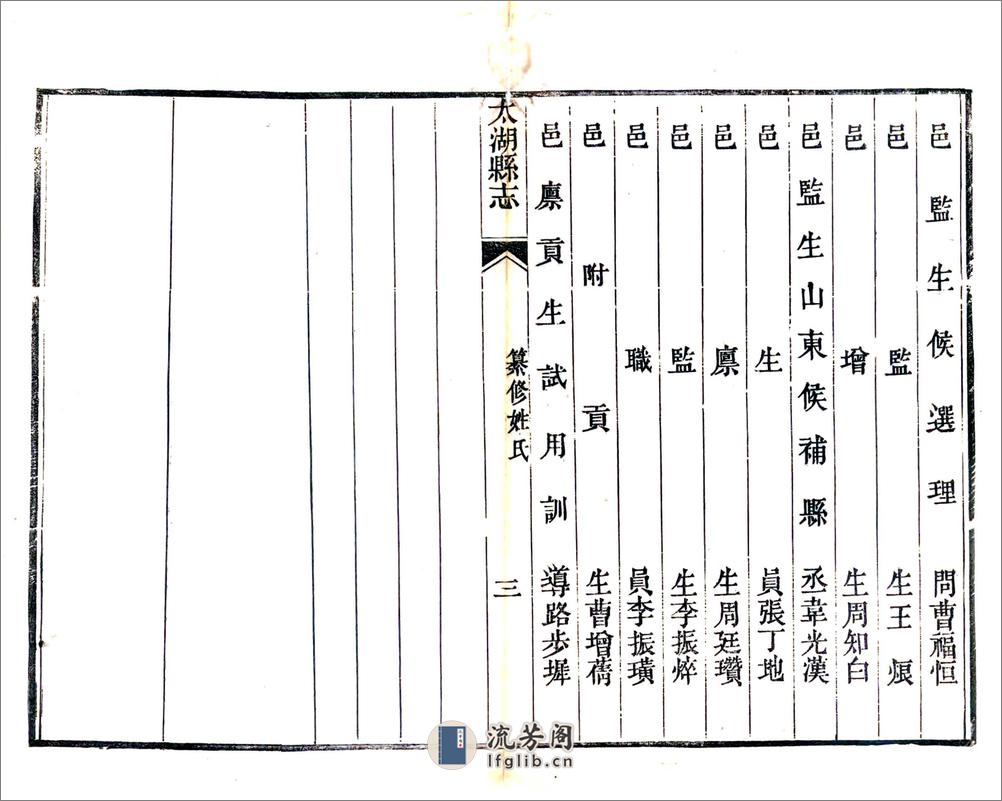 邑監生候選理問曹福恒
邑監生王煨
邑增生周知白
邑監生山東候補縣丞韋光漢
邑生員張丁地
邑廪生周廷瓚
邑監生李振焠
邑職員李振璜
邑附貢生曹增蒨
邑廪貢生試用訓導路步墀
太湖縣志
纂修姓氏
三
流芳阁
lfglib.cn